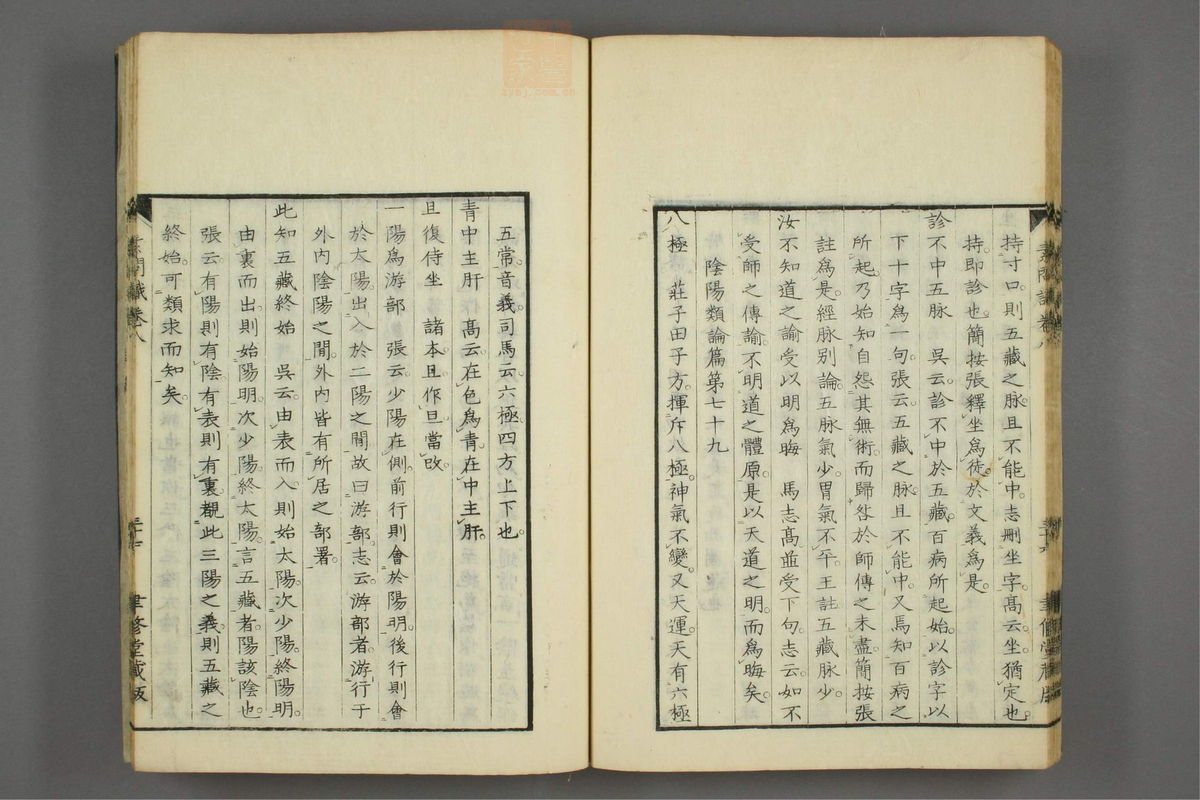 持寸口。則五藏之脉。且不能中。志刪坐字。高云。坐猶定也。
持即診也。簡按張釋坐爲徒。於文義爲是。
診不中五脉　吳云。診不中於五藏。百病所起。始以診字以
下十字爲一句。張云。五藏之脉。且不能中。又焉知百病之
所起。乃始知自怨其無術。而歸咎於師傳之未盡。簡按張
註爲是。經脉別論。五脉氣少。胃氣不平。王註。五藏脉少。
汝不知道之諭受以明爲晦　馬志高並受下句。志云。如不
受師之傳諭。不明道之體原。是以天道之明而爲晦矣。
陰陽類論篇第七十九
八極　莊子田子方。揮斥八極。神氣不變。又天運。天有六極
五常。音義。司馬云。六極。四方上下也。
青中主肝　高云。在色爲青。在中主肝。
且復侍坐　諸本且作旦。當改。
一陽爲游部　張云。少陽在側。前行則會於陽明。後行則會
於太陽。出入於二陽之間。故曰游部。志云。游部者。游行于
外內陰陽之間。外內皆有所居之部署。
此知五藏終始　吳云。由表而入。則始太陽。次少陽。終陽明。
由裏而出。則始陽明。次少陽。終太陽。言五藏者。陽該陰也。
張云。有陽則有陰。有表則有裏。觀此三陽之義。則五藏之
終始。可類求而知矣。
素問識卷八
聿修堂藏版